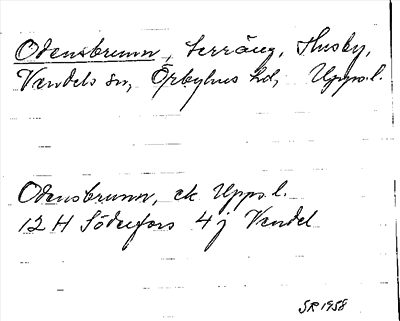 Odensbrunn, terräng, Husby,
Vendels sn, Örbyhus hd, Upps.l.
Odensbrunn, ek Upps.l.
12 H Söderfors 4 j Vendel
SR 1958